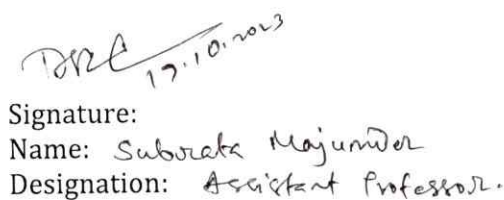 17.10.2023
Signature:
Name: Subrata Majumder
Designation: Assistant Professor.